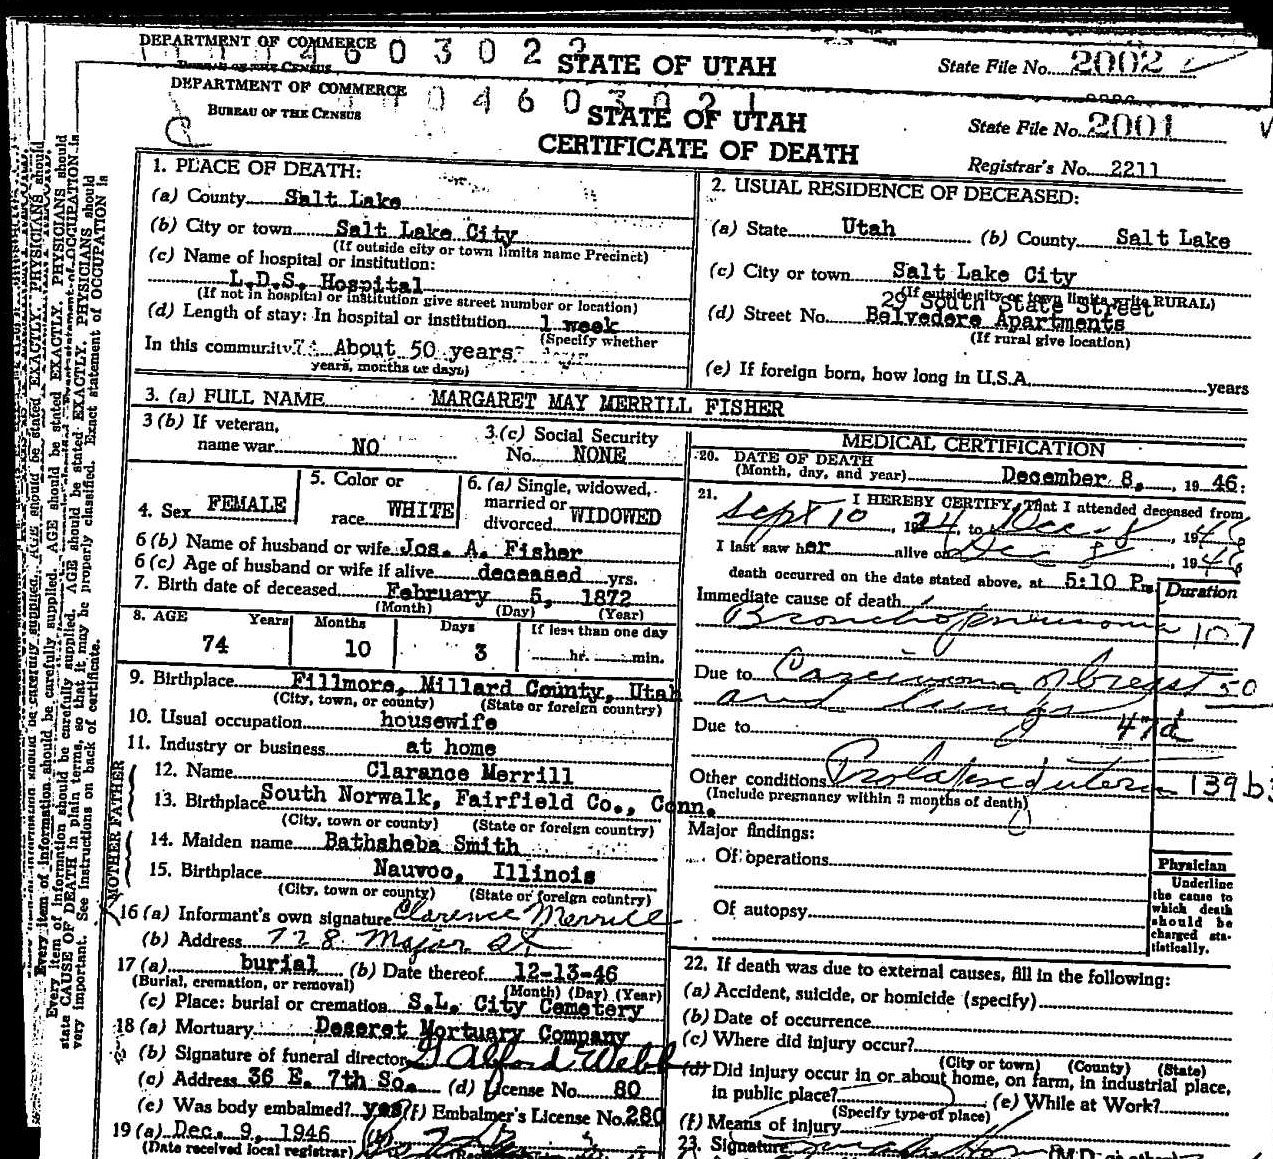 DEPARTMENT OF COMMERCE
STATE OF UTAH
State File No. 2002
DEPARTMENT OF COMMERCE
BUREAU OF THE CENSUS
STATE OF UTAH
State File No. 2001
CERTIFICATE OF DEATH
Registrar's No. 2211
1. PLACE OF DEATH:
(a) County Salt Lake
(b) City or town Salt Lake City
(If outside city or town limits name Precinct)
(c) Name of hospital or institution:
L.D.S. Hospital
(If not in hospital or institution give street number or location)
(d) Length of stay: In hospital or institution 1 week
(Specify whether
In this community About 50 years
years, months or days)
2. USUAL RESIDENCE OF DECEASED:
(a) State Utah (b) County Salt Lake
(c) City or town Salt Lake City
(If outside city or town limits write RURAL)
29 South State Street
(d) Street No. Belvedere Apartments
(If rural give location)
(e) If foreign born, how long in U.S.A. years
3. (a) FULL NAME MARGARET MAY MERRILL FISHER
3 (b) If veteran,
name war NO
3.(c) Social Security
No. NONE
4. Sex FEMALE
5. Color or
race WHITE
6. (a) Single, widowed,
married or
divorced WIDOWED
6 (b) Name of husband or wife Jos. A. Fisher
6 (c) Age of husband or wife if alive deceased yrs.
7. Birth date of deceased February 5, 1872
(Month) (Day) (Year)
8. AGE Years Months Days If less than one day
74 10 3 hr. min.
9. Birthplace Fillmore, Millard County, Utah
(City, town, or county) (State or foreign country)
10. Usual occupation housewife
11. Industry or business at home
FATHER
12. Name Clarance Merrill
13. Birthplace South Norwalk, Fairfield Co., Conn.
(City, town or county) (State or foreign country)
MOTHER
14. Maiden name Bathsheba Smith
15. Birthplace Nauvoo, Illinois
(City, town or county) (State or foreign country)
16 (a) Informant's own signature Clarence Merrill
(b) Address 728 Major St
17 (a) burial (b) Date thereof 12-13-46
(Burial, cremation, or removal) (Month) (Day) (Year)
(c) Place: burial or cremation S.L. City Cemetery
18 (a) Mortuary Deseret Mortuary Company
(b) Signature of funeral director D Alford Webb
(c) Address 36 E. 7th So. (d) License No. 80
(e) Was body embalmed? yes (f) Embalmer's License No. 280
19 (a) Dec. 9, 1946
(Date received local registrar)
MEDICAL CERTIFICATION
20. DATE OF DEATH
(Month, day, and year) December 8, 1946
21. I HEREBY CERTIFY, That I attended deceased from
Sept 10, 1944, to Dec 8, 1946
I last saw her alive on Dec 8, 1946
death occurred on the date stated above, at 5:10 P.m.
Duration
Immediate cause of death
Bronchopneumonia 107
Due to Carcinoma of breast 50
and lungs
Due to 47d
Other conditions Prolapsed uterus 139b3
(Include pregnancy within 3 months of death)
Major findings:
Of operations
Of autopsy
Physician
Underline
the cause to
which death
should be
charged sta-
tistically.
22. If death was due to external causes, fill in the following:
(a) Accident, suicide, or homicide (specify)
(b) Date of occurrence
(c) Where did injury occur?
(City or town) (County) (State)
(d) Did injury occur in or about home, on farm, in industrial place,
in public place? (e) While at Work?
(Specify type of place)
(f) Means of injury
23. Signature
Every item of information should be carefully supplied. AGE should be stated EXACTLY. PHYSICIANS should
state CAUSE OF DEATH in plain terms, so that it may be properly classified. Exact statement of OCCUPATION is
very important. See instructions on back of certificate.